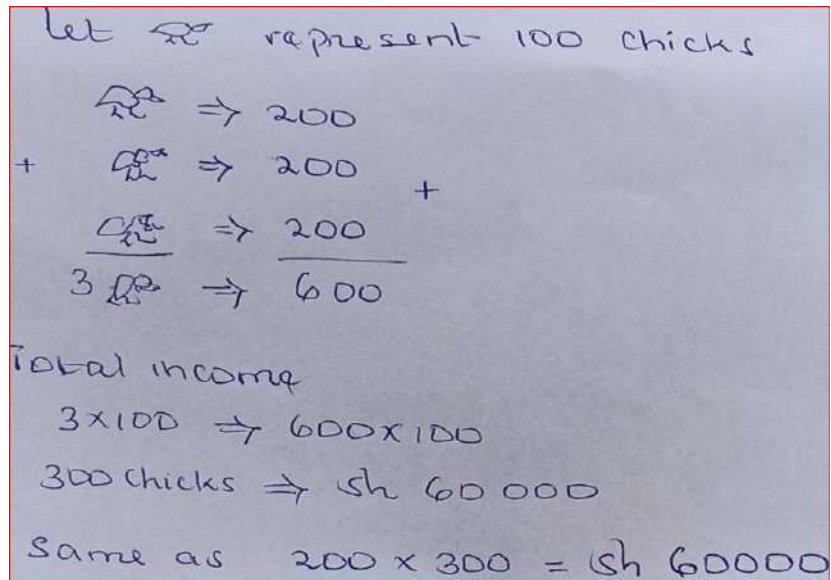 Let represent 100 chicks
⇒ 200
+ ⇒ 200 +
⇒ 200
3 ⇒ 600
Total income
3×100 ⇒ 600×100
300 chicks ⇒ sh 60 000
Same as 200 × 300 = sh 60000